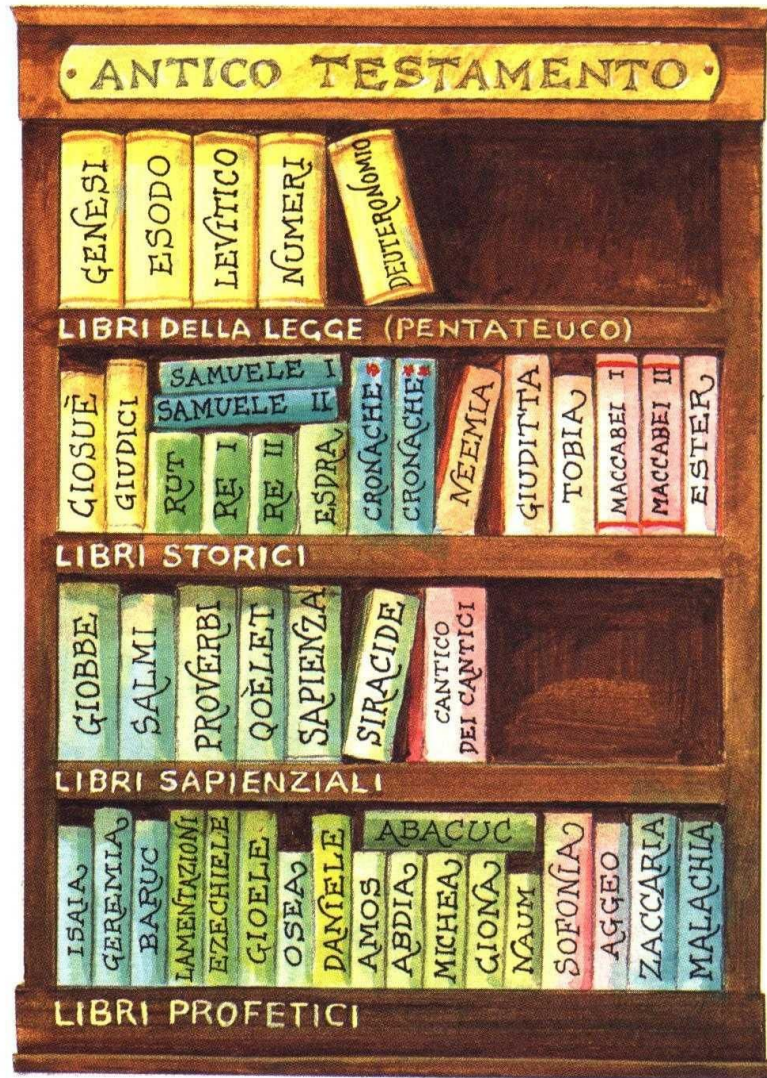 ANTICO TESTAMENTO
GENESI
ESODO
LEVITICO
NUMERI
DEUTERONOMIO
LIBRI DELLA LEGGE (PENTATEUCO)
GIOSUÈ
GIUDICI
SAMUELE I
SAMUELE II
RUT
RE I
RE II
ESDRA
CRONACHE *
CRONACHE **
NEEMIA
GIUDITTA
TOBIA
MACCABEI I
MACCABEI II
ESTER
LIBRI STORICI
GIOBBE
SALMI
PROVERBI
QOÈLET
SAPIENZA
SIRACIDE
CANTICO
DEI CANTICI
LIBRI SAPIENZIALI
ISAIA
GEREMIA
BARUC
LAMENTAZIONI
EZECHIELE
GIOELE
OSEA
DANIELE
ABACUC
AMOS
ABDIA
MICHEA
GIONA
NAUM
SOFONIA
AGGEO
ZACCARIA
MALACHIA
LIBRI PROFETICI